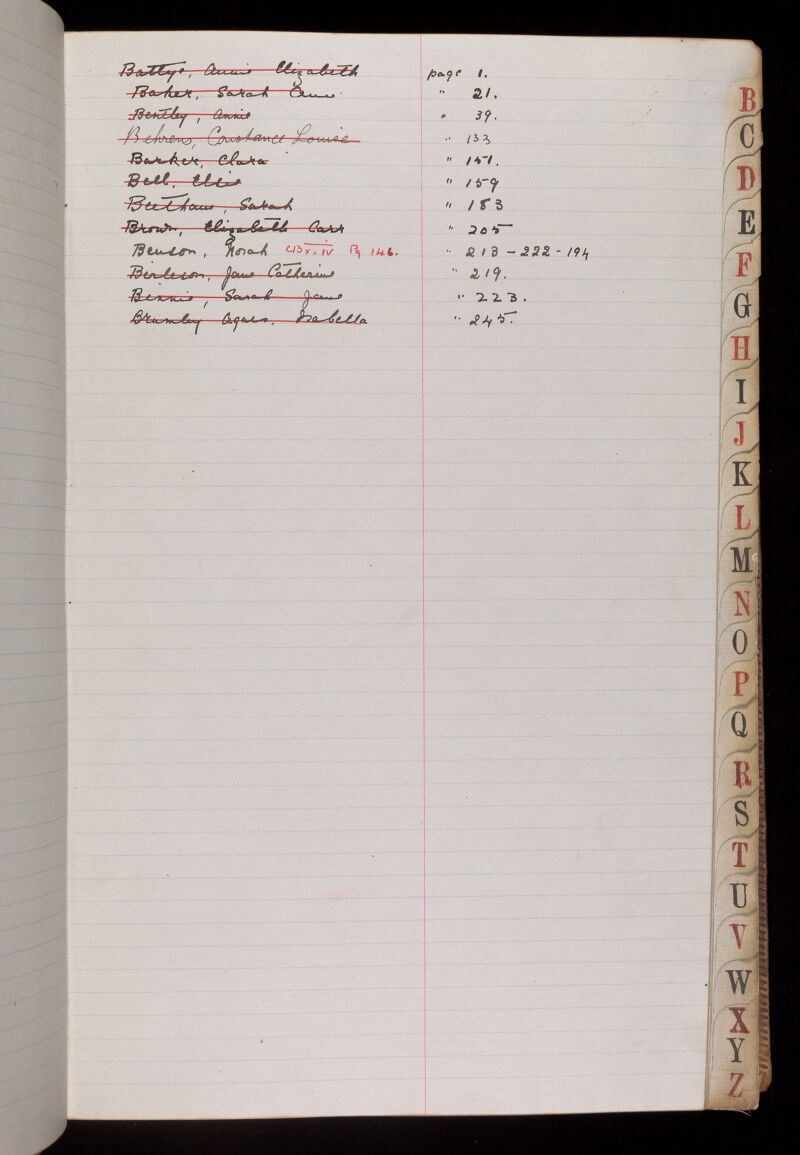 Battye, Annie Elizabeth page 1.
Baker, Sarah Ann " 21.
Bentley, Annie " 39.
Behrens, Constance Louise " 133
Barker, Clara " 151.
Bell, Elsie " 159
Beetham, Sarah " 183
Brown, Elizabeth Carr " 205
Benson, Norah Pg 146. " 213 - 222 - 194
Birleson, Jane Catherine " 219.
Binnie, Sarah Jane " 223.
Brumley Agnes, Isabella " 245.
B
C
D
E
F
G
H
I
J
K
L
M
N
O
P
Q
R
S
T
U
V
W
X
Y
Z